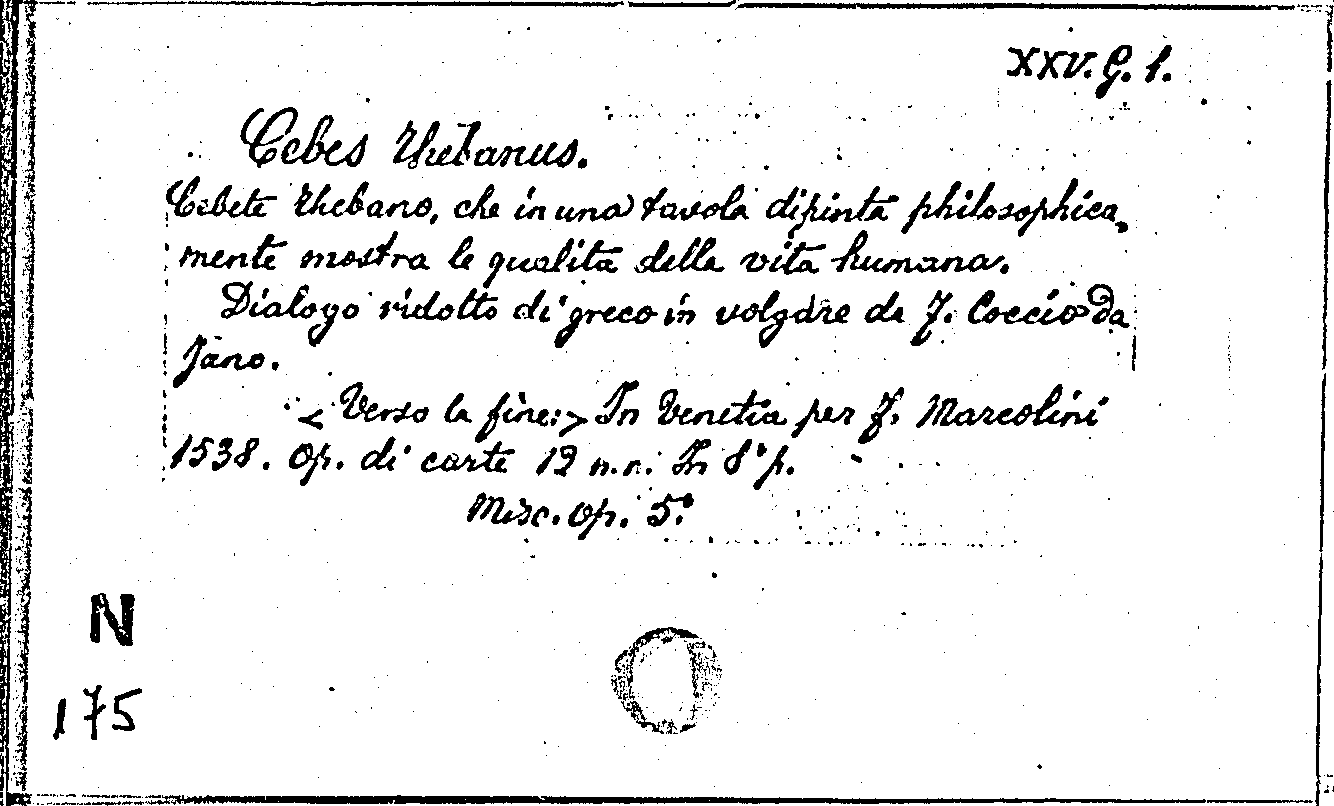 XXV. G. 1.
Cebes Thebanus.
Cebete Thebano, che in una tavola dipinta philosophica,
mente mostra le qualita della vita humana.
Dialogo ridotto di greco in volgare da F. Coccio da
Jano.
< Verso la fine: > In Venetia per F. Marcolini
1538. Op. di carte 12 n.n. In 8° p.
Misc. Op. 5°
N
175